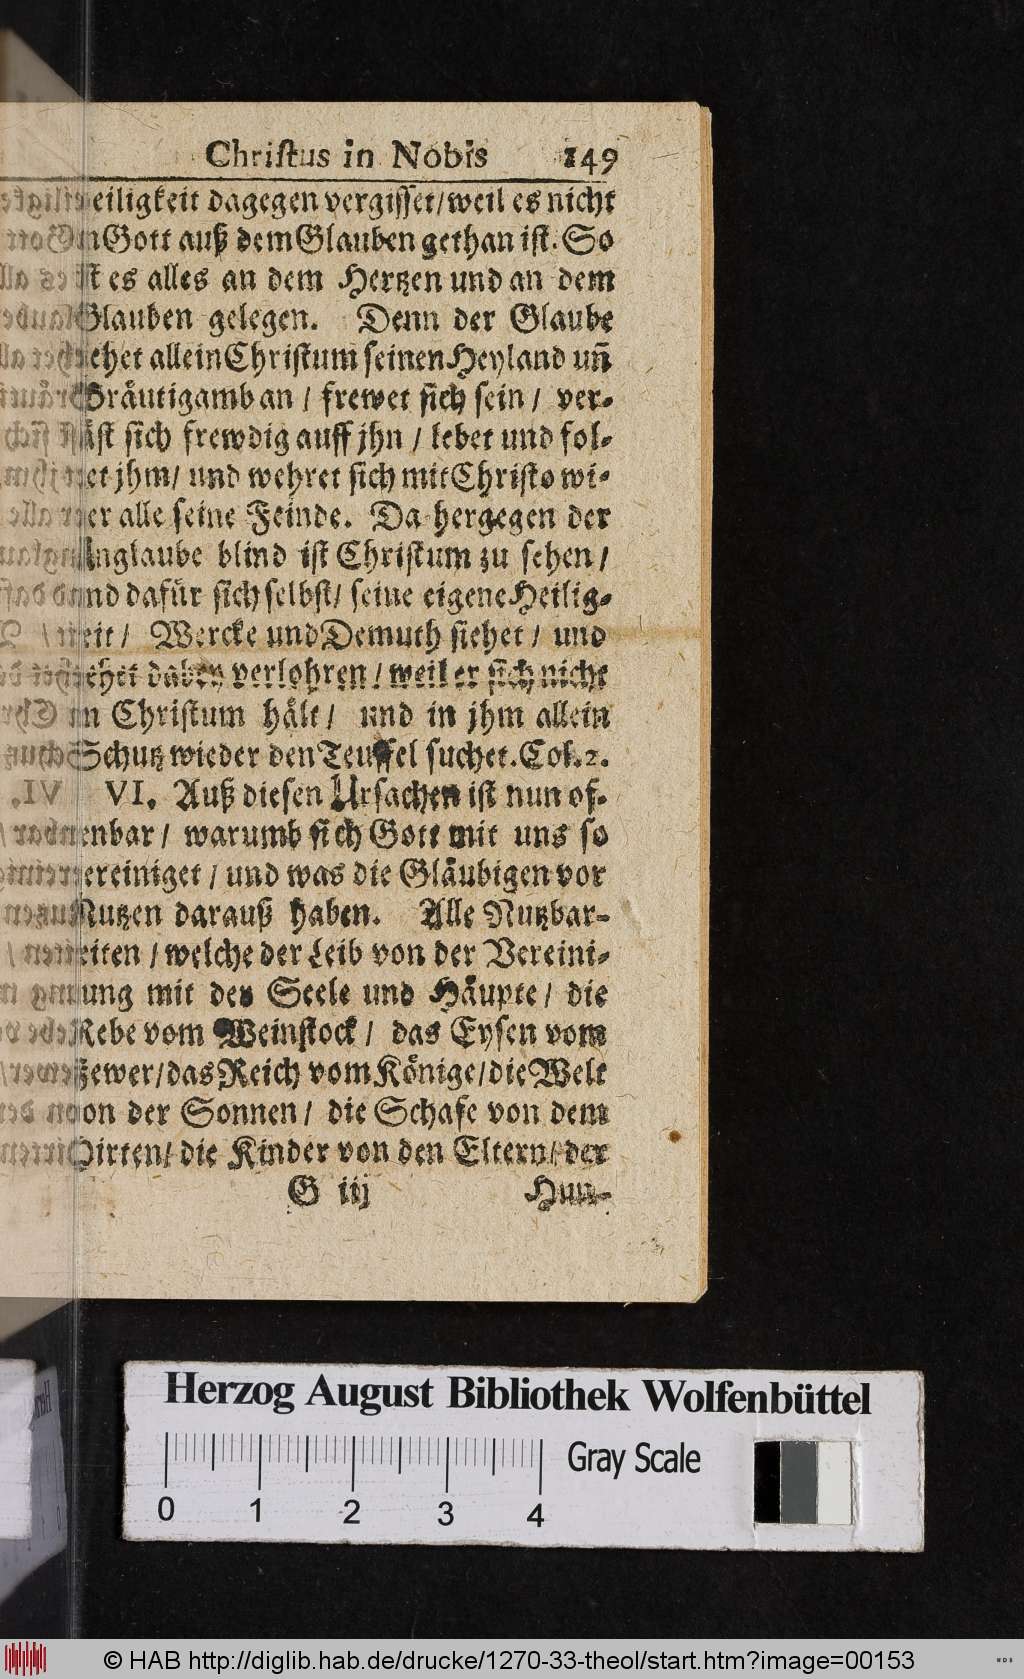 Christus in Nobis 149
eiligkeit dagegen vergisset/weil es nicht
Gott auß dem Glauben gethan ist. So
es alles an dem Hertzen und an dem
Glauben gelegen. Denn der Glaube
ehet allein Christum seinen Heyland uñ
Bräutigamb an / frewet sich sein / ver-
läst sich frewdig auff jhn / lebet und fol-
get jhm/ und wehret sich mit Christo wi-
er alle seine Feinde. Da hergegen der
Unglaube blind ist Christum zu sehen /
und dafür sich selbst/ seine eigene Heilig-
keit / Wercke und Demuth siehet / und
gehet dabey verlohren / weil er sich nicht
an Christum hält / und in jhm allein
Schutz wieder den Teuffel suchet. Col. 2.
VI. Auß diesen Ursachen ist nun of-
fenbar / warumb sich Gott mit uns so
vereiniget / und was die Gläubigen vor
Nutzen darauß haben. Alle Nutzbar-
keiten / welche der Leib von der Vereini-
gung mit der Seele und Häupte / die
Rebe vom Weinstock / das Eysen vom
Fewer/das Reich vom Könige/die Welt
von der Sonnen / die Schafe von dem
Hirten/ die Kinder von den Eltern/ der
G iij Hun-
Herzog August Bibliothek Wolfenbüttel
Gray Scale
0 1 2 3 4
© HAB http://diglib.hab.de/drucke/1270-33-theol/start.htm?image=00153